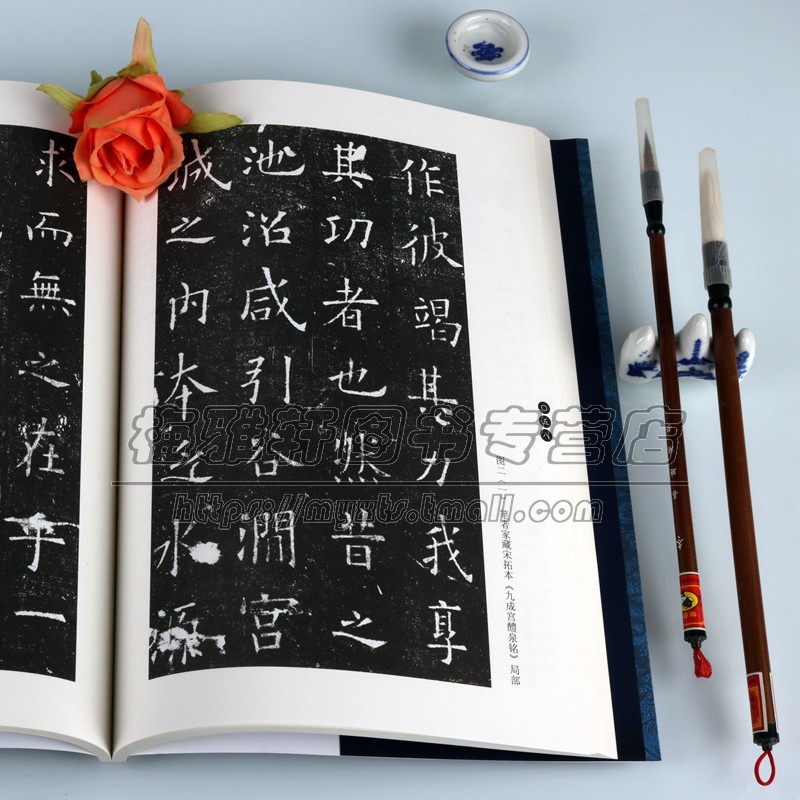 作彼竭其力我享
其功者也然昔之
池沼咸引谷澗宮
城之内本乏水源
求而無之在乎一
图二（一 笔者家藏宋拓本《九成宫醴泉铭》局部
梅雅轩图书专营店
http://myxts.tmall.com